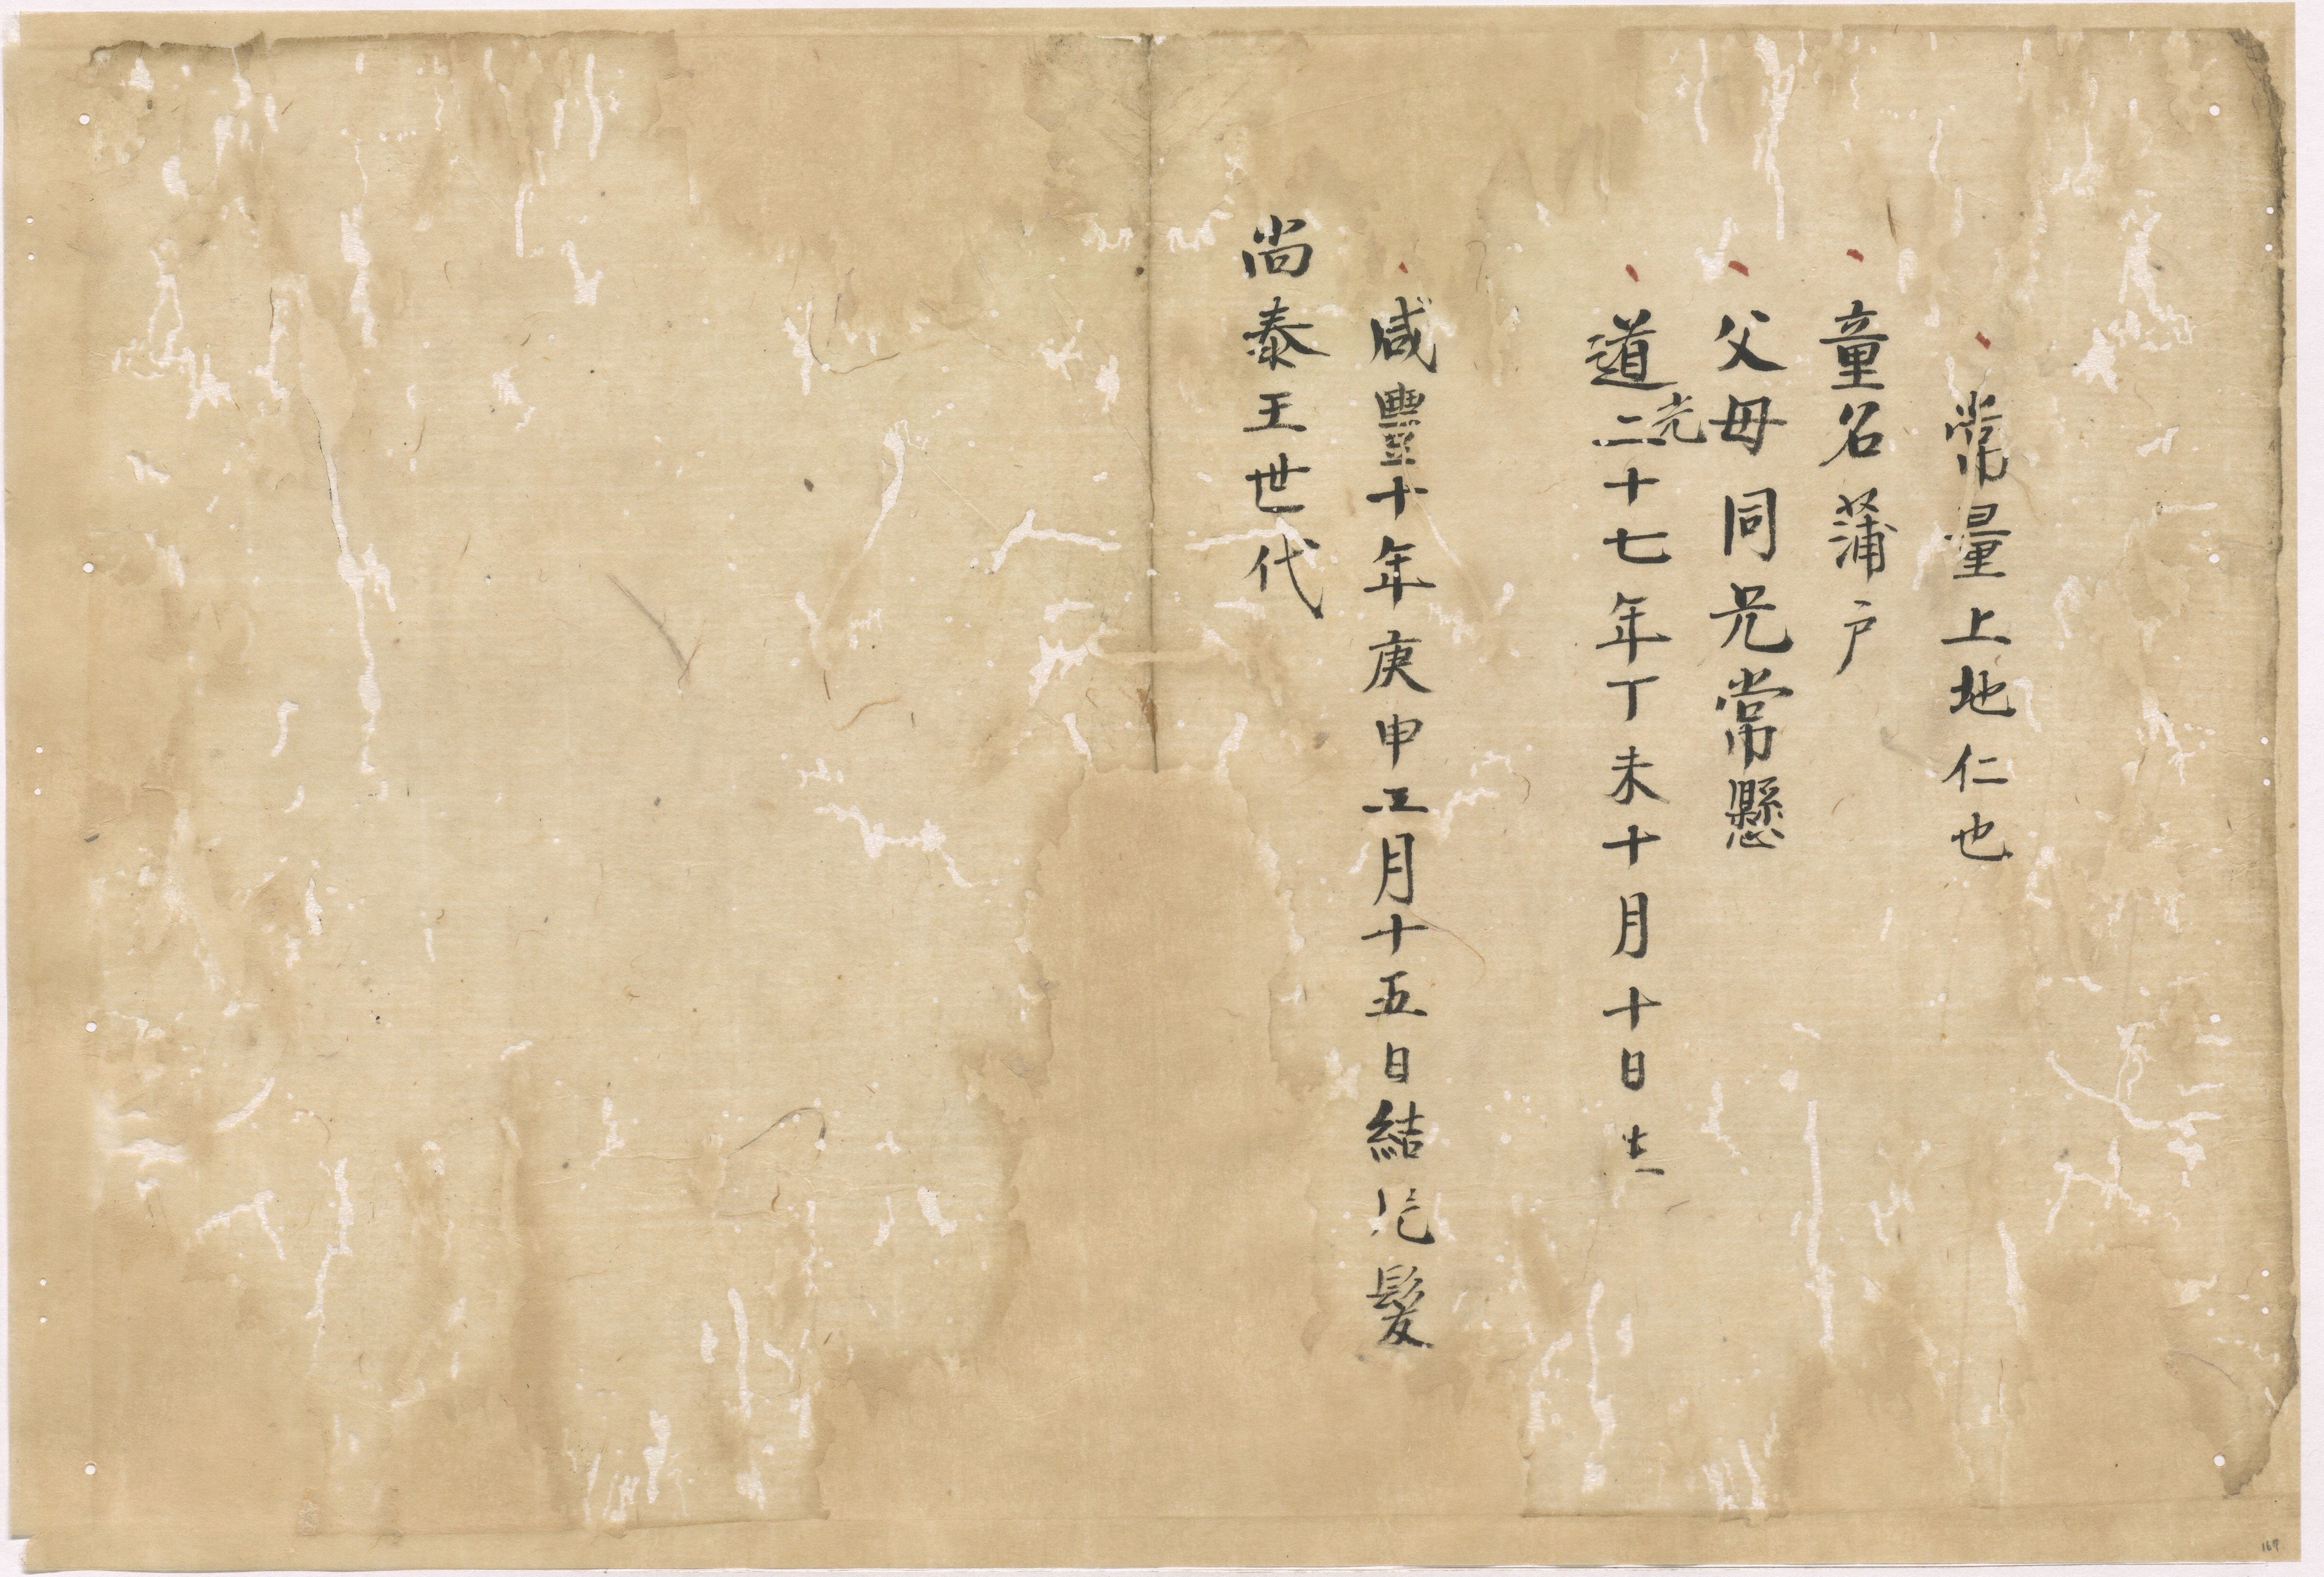 常量上地仁也
童名蒲戸
父母同兄常懸
道光二十七年丁未十月十日生
咸豐十年庚申正月十五日結 髮
尚泰王世代
167